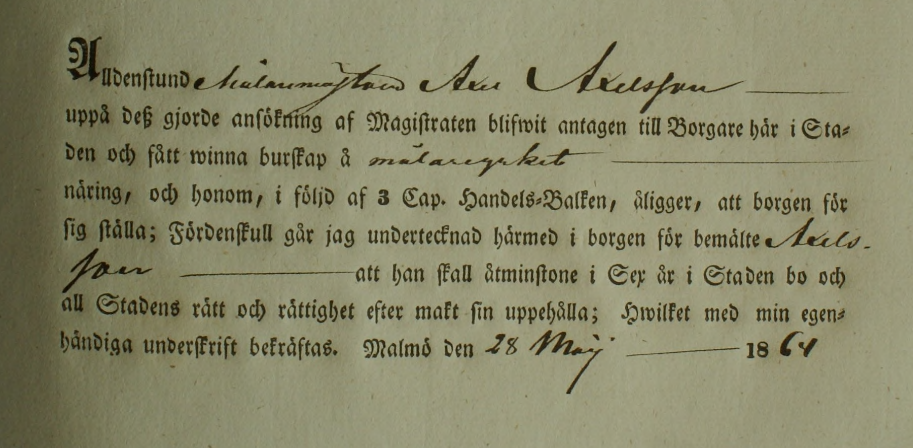 Alldenstund Målaremästaren Axel Axelsson
uppå deß gjorde ansökning af Magistraten blifwit antagen till Borgare här i Sta-
den och fått winna burskap å målareyrket
näring, och honom, i följd af 3 Cap. Handels-Balken, åligger, att borgen för
sig ställa; Fördenskull går jag undertecknad härmed i borgen för bemälte Axels-
son att han skall åtminstone i Sex år i Staden bo och
all Stadens rätt och rättighet efter makt sin uppehålla; Hwilket med min egen-
händiga underskrift bekräftas. Malmö den 28 Maij 1864